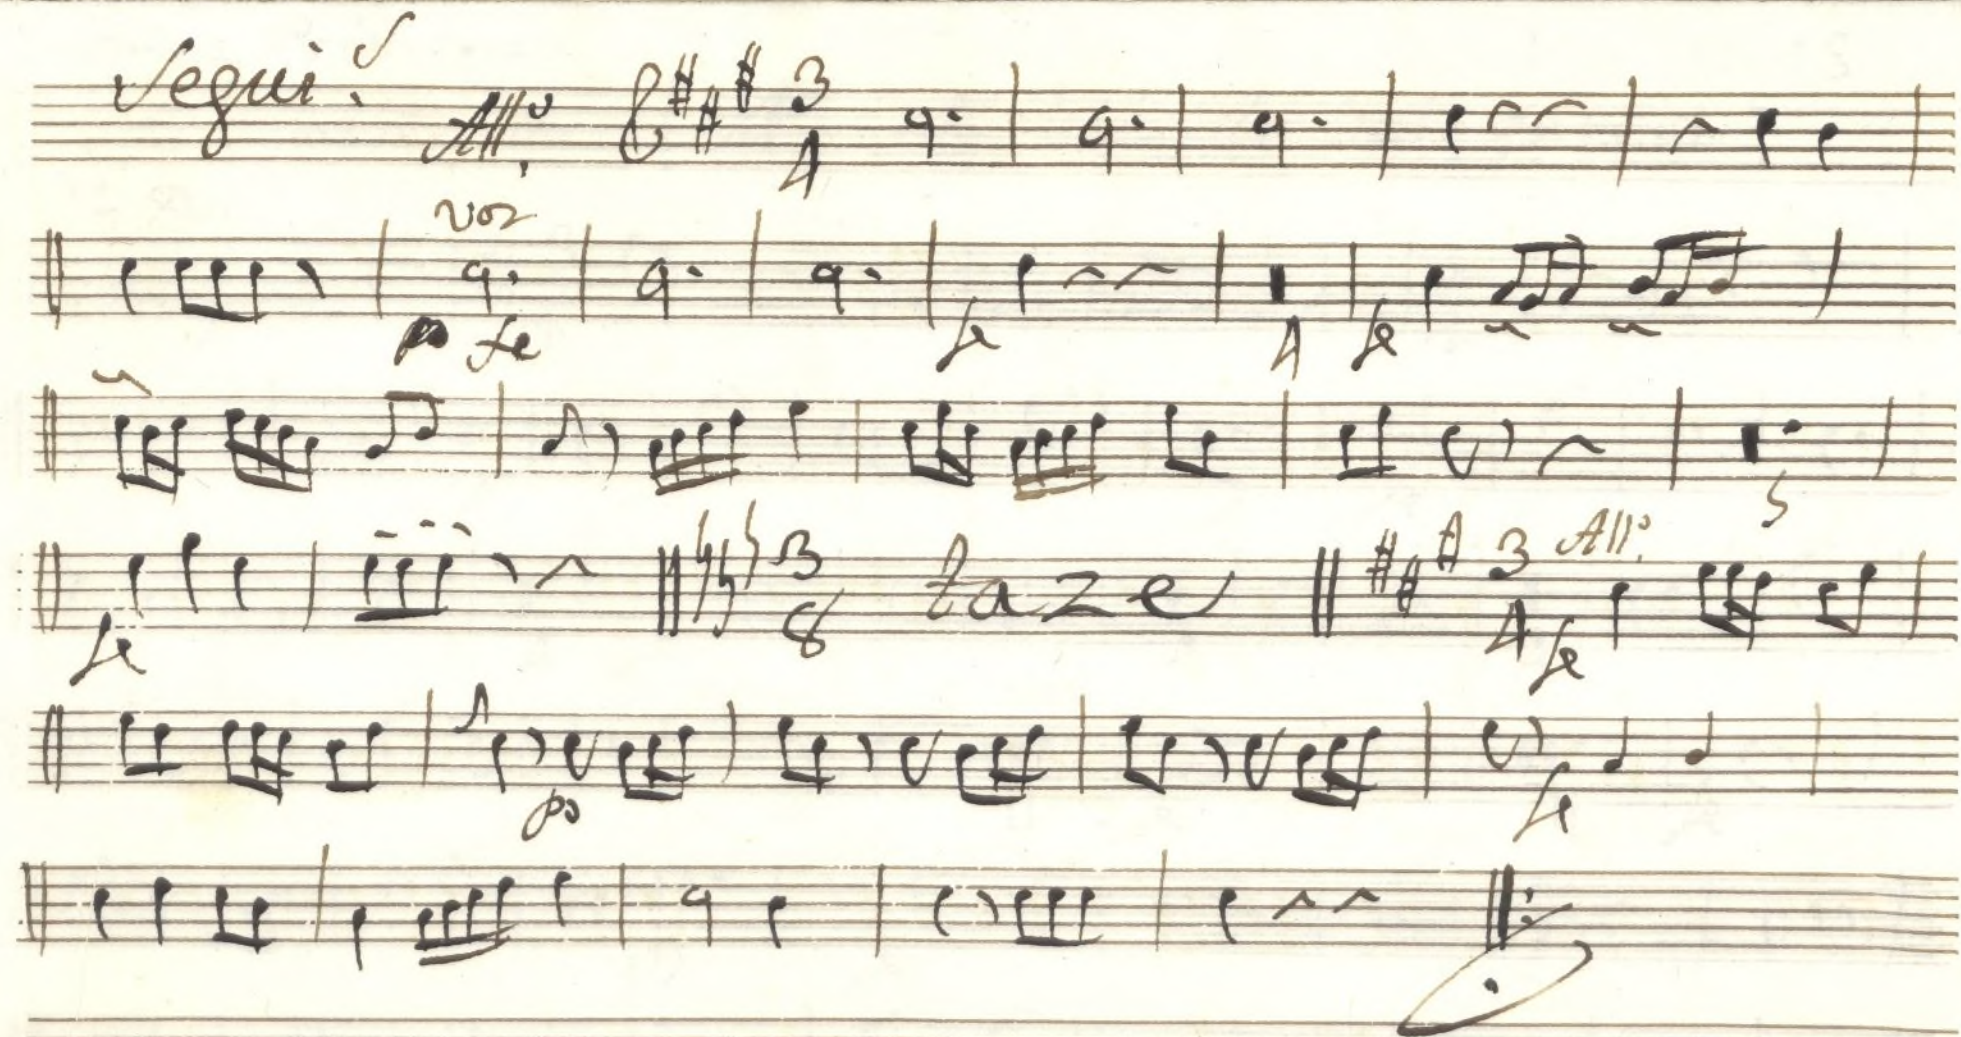 Segui.s All.o 3 4
voz
po fe fe 4 fe
5
fe 3 8 taze 3 4 All.o fe
po fe